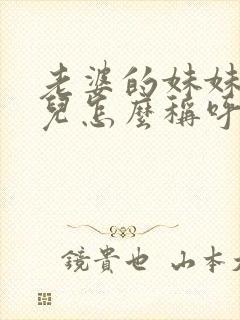 老婆的妹妹
兒怎麼稱呼
鏡貴也 山本